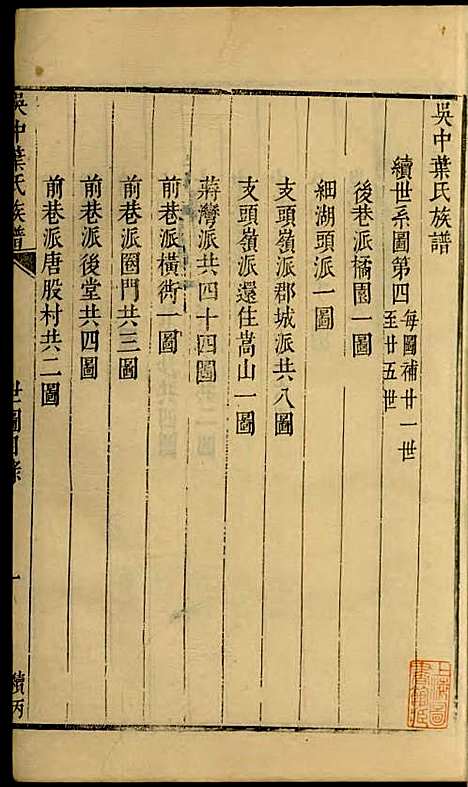 吳中葉氏族譜
續世系圖第四 每圖補廿一世至廿五世
後巷派橘園一圖
細湖頭派一圖
支頭嶺派郡城派共八圖
支頭嶺派還住嵩山一圖
蔣灣派共四十四圖
前巷派橫街一圖
前巷派圈門共三圖
前巷派後堂共四圖
前巷派唐股村共二圖
吳中葉氏族譜 世圖目錄 一 續丙
上海圖書館藏